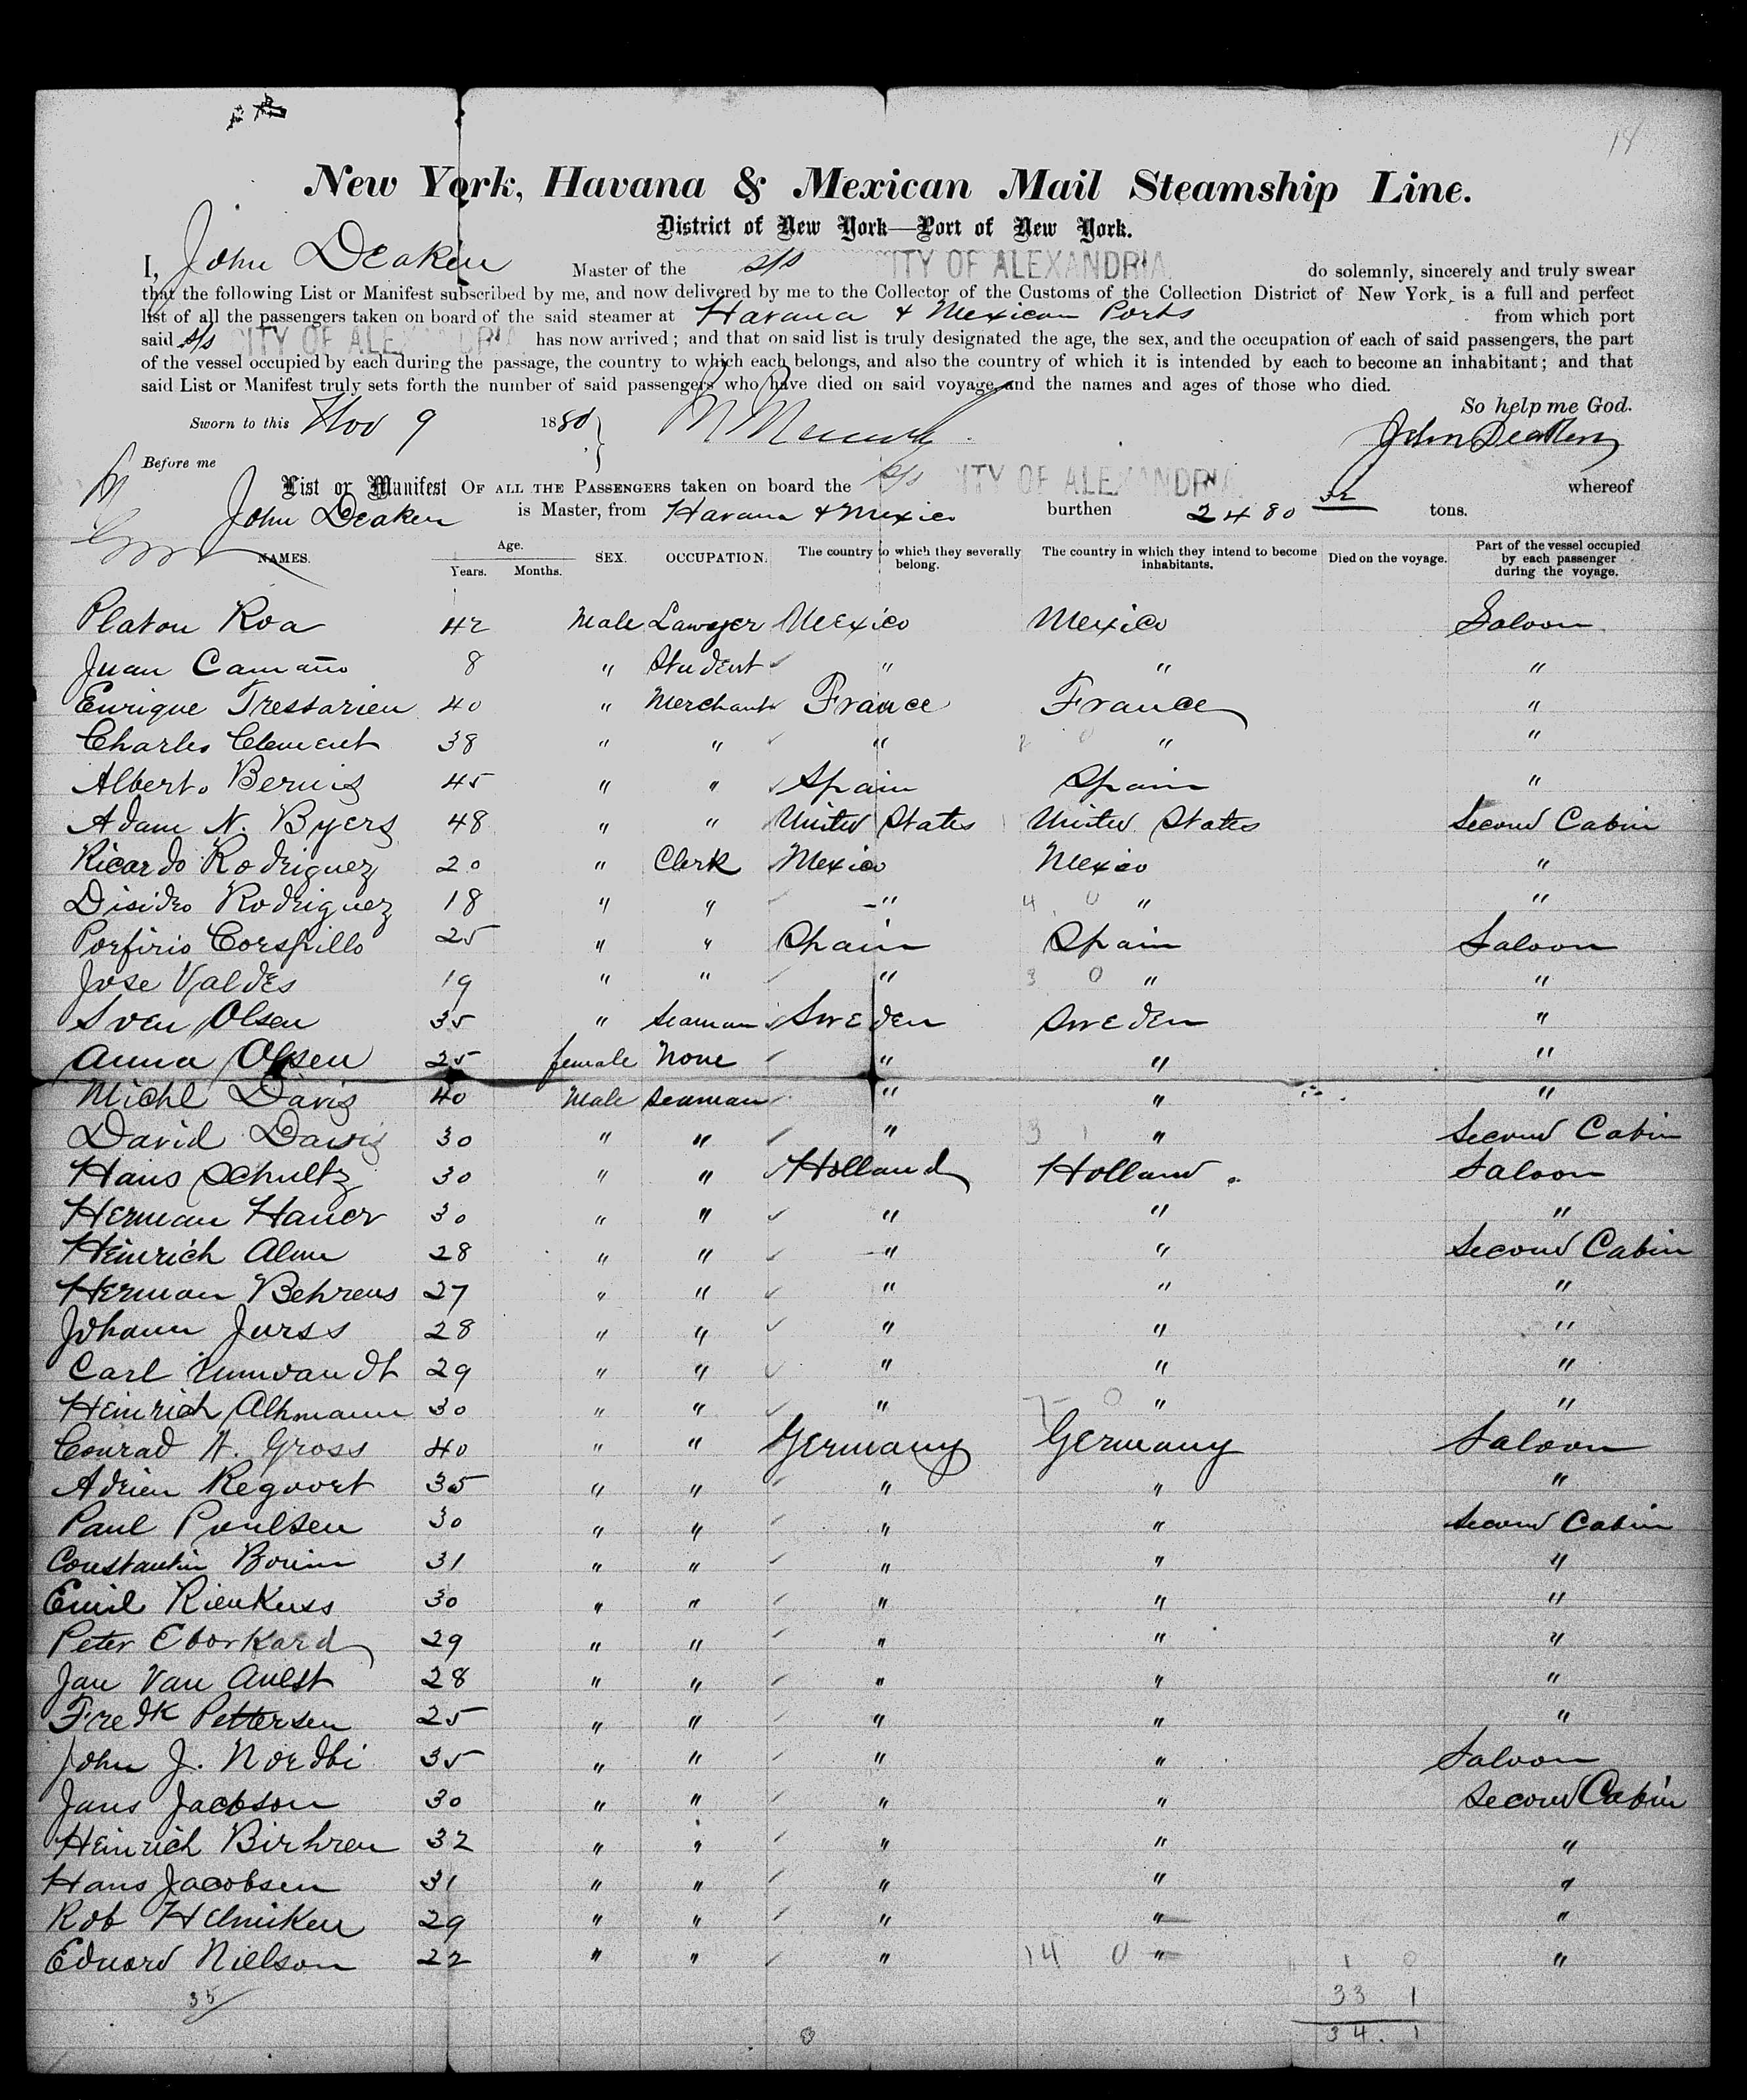 14
New York, Havana & Mexican Mail Steamship Line.
District of New York—Port of New York.
I, John Deaken Master of the s/s ITY OF ALEXANDRIA do solemnly, sincerely and truly swear
that the following List or Manifest subscribed by me, and now delivered by me to the Collector of the Customs of the Collection District of New York, is a full and perfect
list of all the passengers taken on board of the said steamer at Havana & Mexican Ports from which port
said s/s ITY OF ALEXANDRIA has now arrived; and that on said list is truly designated the age, the sex, and the occupation of each of said passengers, the part
of the vessel occupied by each during the passage, the country to which each belongs, and also the country of which it is intended by each to become an inhabitant; and that
said List or Manifest truly sets forth the number of said passengers who have died on said voyage, and the names and ages of those who died.
So help me God.
Sworn to this Nov 9 1880 John Deaken
Before me
List or Manifest OF ALL THE PASSENGERS taken on board the s/s ITY OF ALEXANDRIA whereof
John Deaken is Master, from Havana & Mexico burthen 2480 32 tons.
NAMES. Age. Years. Months. SEX. OCCUPATION. The country to which they severally belong. The country in which they intend to become inhabitants. Died on the voyage. Part of the vessel occupied by each passenger during the voyage.
Platon Roa 42 Male Lawyer Mexico Mexico Saloon
Juan Camaño 8 " Student " " "
Enrique Tressarieu 40 " Merchant France France "
Charles Clement 38 " " " " "
Alberto Bernis 45 " " Spain Spain "
Adam N. Byers 48 " " United States United States Second Cabin
Ricardo Rodriguez 20 " Clerk Mexico Mexico "
Disidro Rodriguez 18 " " " 4 0 " "
Porfirio Corspillo 25 " " Spain Spain Saloon
Jose Valdes 19 " " " 3 0 " "
Sven Olsen 35 " Seaman Sweden Sweden "
Anna Olsen 25 female None " " "
Michl Davis 40 Male Seaman " " "
David Davis 30 " " " 3 1 " Second Cabin
Hans Schultz 30 " " Holland Holland Saloon
Herman Hauer 30 " " " " "
Heinrich Alm 28 " " " " Second Cabin
Herman Behrens 27 " " " " "
Johann Jurss 28 " " " " "
Carl 29 " " " " "
Heinrich Alhmann 30 " " " 7 0 " "
Conrad H. Gross 40 " " Germany Germany Saloon
Adrien Regoort 35 " " " " "
Paul Poulsen 30 " " " " Second Cabin
Constantin Bonin 31 " " " " "
Emil Rienkuss 30 " " " " "
Peter Eborkard 29 " " " " "
Jan Van Aulst 28 " " " " "
Fredk Pettersen 25 " " " " "
John J. Nordbi 35 " " " " Saloon
Jans Jacobson 30 " " " " Second Cabin
Heinrich Birhren 32 " " " " "
Hans Jacobsen 31 " " " " "
Rob Helmiken 29 " " " " "
Eduard Nielson 22 " " " 14 0 " 1 0 "
35 33 1
34. 1